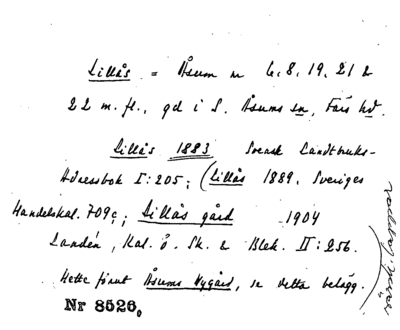 Lillås = Åsum nr 6, 8, 19, 21 &
22 m. fl., gd i S. Åsums sn, Färs hd.
Lillås 1883 Svensk Landtbruks-
Adressbok I:205; (Lillås 1889. Sveriges
Handelskal. 709ç; Lillås gård 1904
Landén, Kal. ö. Sk. & Blek. II:256.
Hette förut Åsums Nygård, se detta belägg.
Nr 8526.